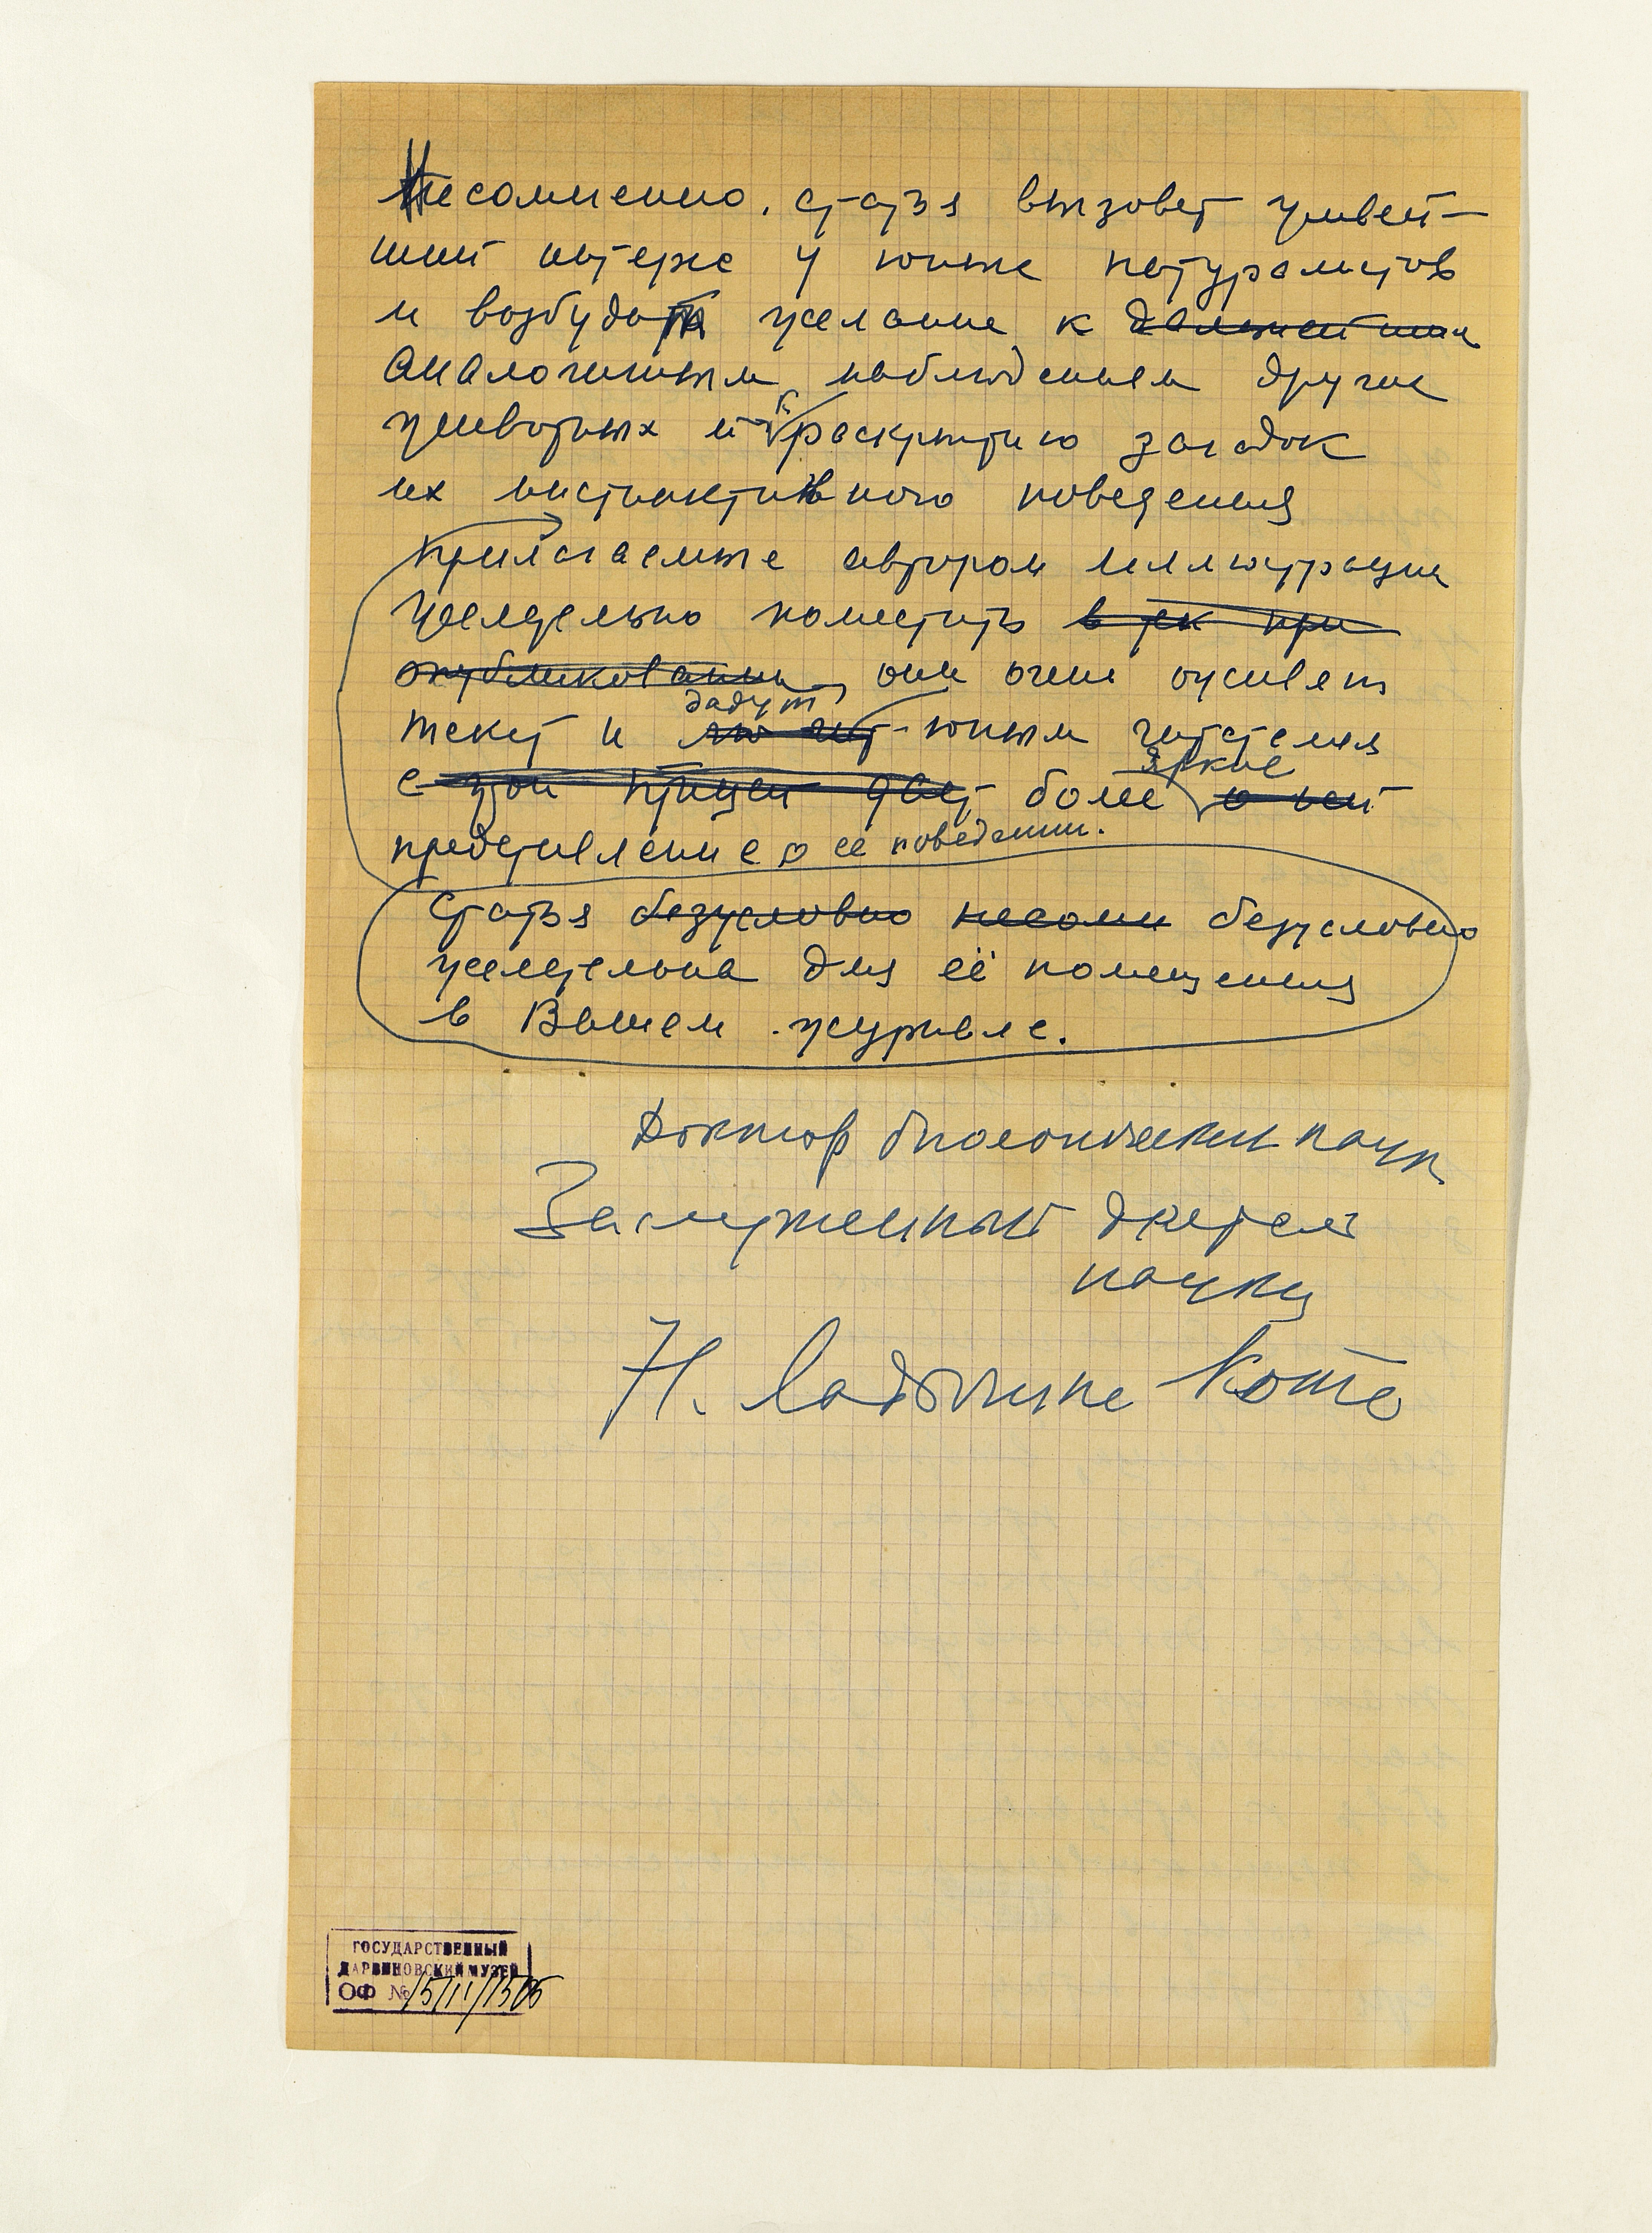 Несомненно, статья вызовет живей-
ший интерес у юных натуралистов
и возбудит желание к дальнейшим
аналогичным наблюдениям других
животных и к раскрытию загадок
их инстинктивного поведения
Прилагаемые автором иллюстрации
желательно поместить в тек при
опубликовании, они очень оживляют
текст и дадут юным читателям
с этой птицей дают более яркое о ней
представление о ее поведении.
Статья безусловно несомн безусловно
желательна для её помещения
в Вашем журнале.
Доктор биологических наук
Заслуженный деятель
науки
Н. Ладыгина Котс
ГОСУДАРСТВЕННЫЙ
ДАРВИНОВСКИЙ МУЗЕЙ
ОФ №